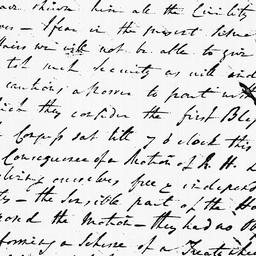 have shewn him all the Civility
I fear in the present
affairs we will not be able to give
such Security as will
cautious a person to part with
which they consider the first
Congress sat till 7 o'clock this
Consequence of a Motion of R. H. L
ourselves free & independ
the Sensible part of the Ho
the Motion – they had no
forming a Scheme of a Treaty